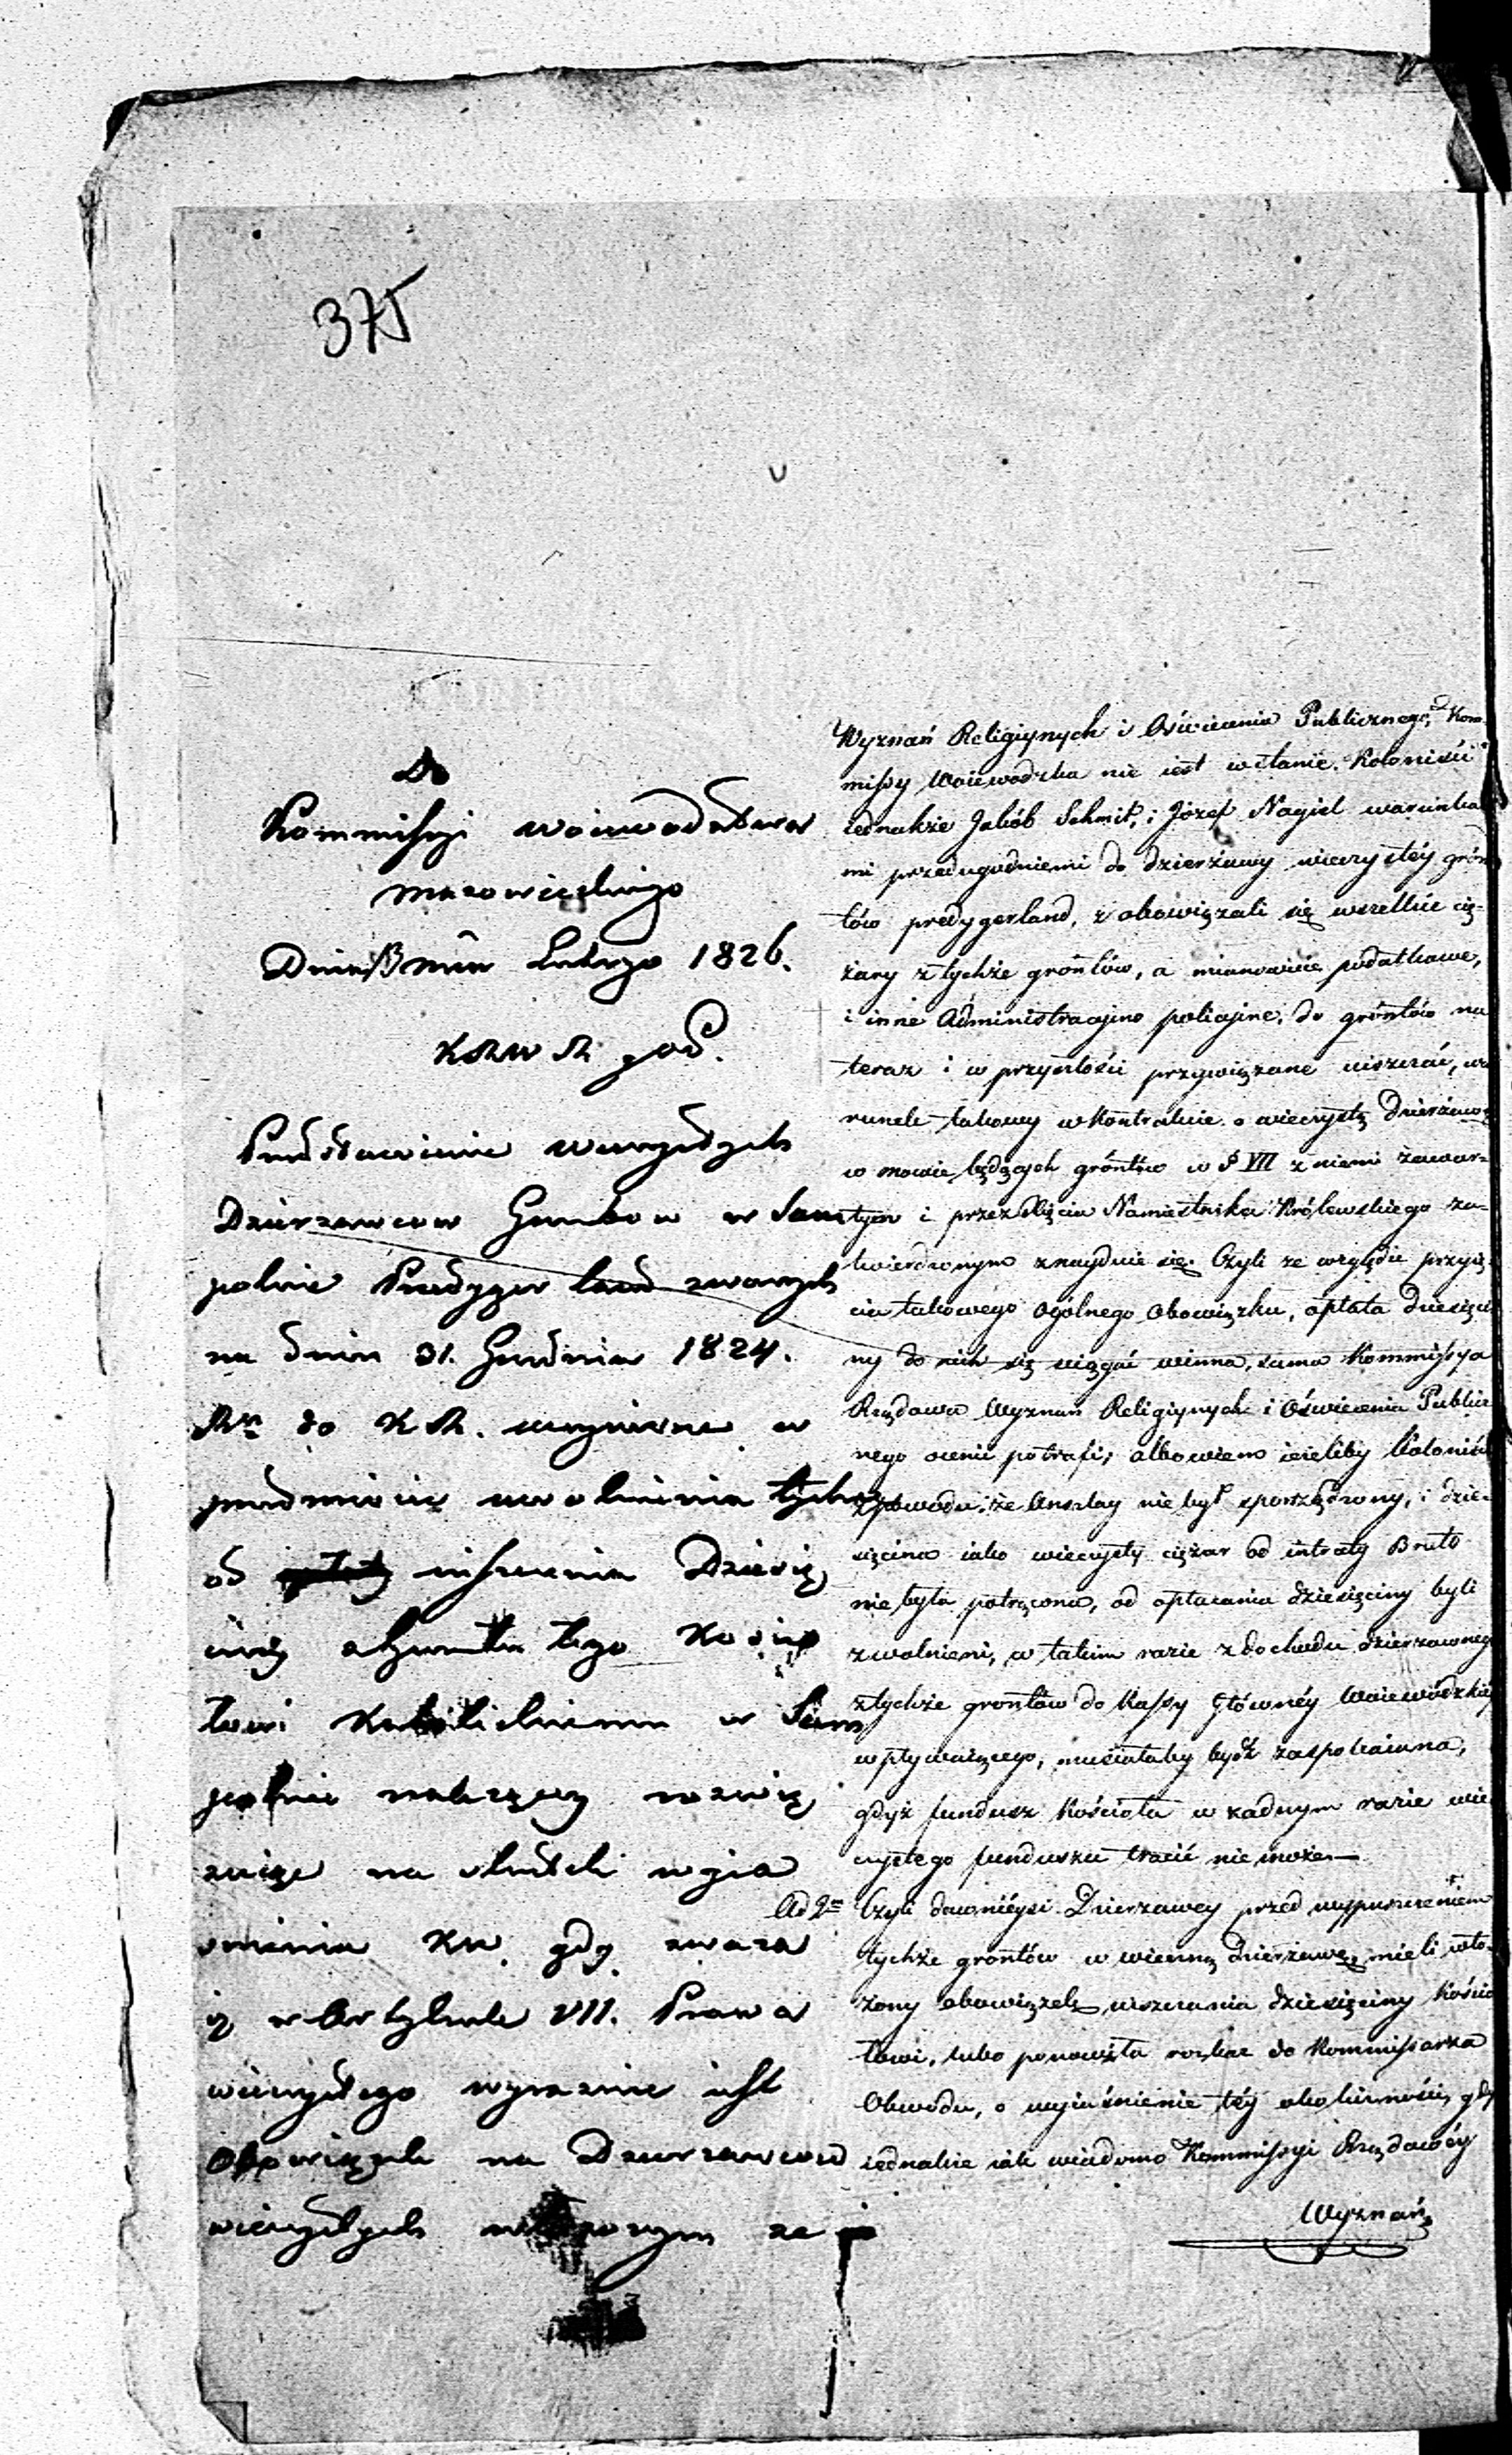 375
Do
Kommissyi woiewodztwa
Mazowieckiego
Dnia Lutego 1826.
Przedstawienie wieczystych
Dzierzawcow Gruntow w Sam
polnie Predyger land zwanych
na dniu 31. Grudnia 1824.
do uczynione w
przedmiocie uwolnienia tychże
od uiszczenia Dziesię
ciny z gruntu tego Kościo
łowi Katolickiemu w Sam
polnie należącey
na skutek wyia
śnienia KW. gdy zważa
iż w Artykule VII. Prawa
wieczystego wyraznie iest
Obowiązek na Dzierzawcow
wieczystych za
Wyznań Religiynych i Oświecenia Publicznego, Kom-
missya Woiewodzka nie iest w stanie. Koloniści
iednakże Jakób Schmit, i Józef Nagiel warunka
mi przedugodniemi do dzierżawy wieczystéy grón
tów predygerland, zobowiązali się wszelkie cię-
żary z tychże grontów, a mianowicie podatkowe,
i inne Administracyino policyine, do gróntów na
teraz i w przyszłości przywiązane uiszczać, wa
runek takowy w Kontrakcie o wieczystą Dzierżawę
w mowie będących gróntów w § VII z niemi zawar-
tym i przez Xięcia Namiestnika Królewskiego za-
twierdzonym znayduie się. Czyli ze względu przyię
cia takowego ogólnego obowiązku, opłata dziesięci
ny do nich się ściągać winna, sama Kommissya
Rządowa Wyznań Religiynych i Oświecenia Public
nego ocenić potrafi; albowiem ieżeliby Koloniści
z powodu, że Anszlag nie był sporządzony, i dzie-
sięcina iako wieczysty ciężar od intraty Bruto
nie była potrącona, od opłacania dziesięciny byli
zwolnieni, w takim razie z dochodu dzierzawnego
z tychże grontów do Kassy Głównéy Woiewódzkiéy
wpływaiącego, musiałaby bydź zaspokaiana,
gdyż fundusz Kościoła w żadnym razie wie
czystego funduszu tracić nie może.—
Ad 2m Czyli dawnieysi Dzierzawcy przed wypuszczeniem
tychże grontów w wieczną dzierżawę, mieli wło-
żony obowiązek uiszczania dziesięciny Kościo
łowi, lubo ponowiła rozkaz do Kommissarza
Obwodu, o wyiaśnienie téy okoliczności, gdy
iednakże iak wiadomo Kommissyi Rządowéy
Wyznań